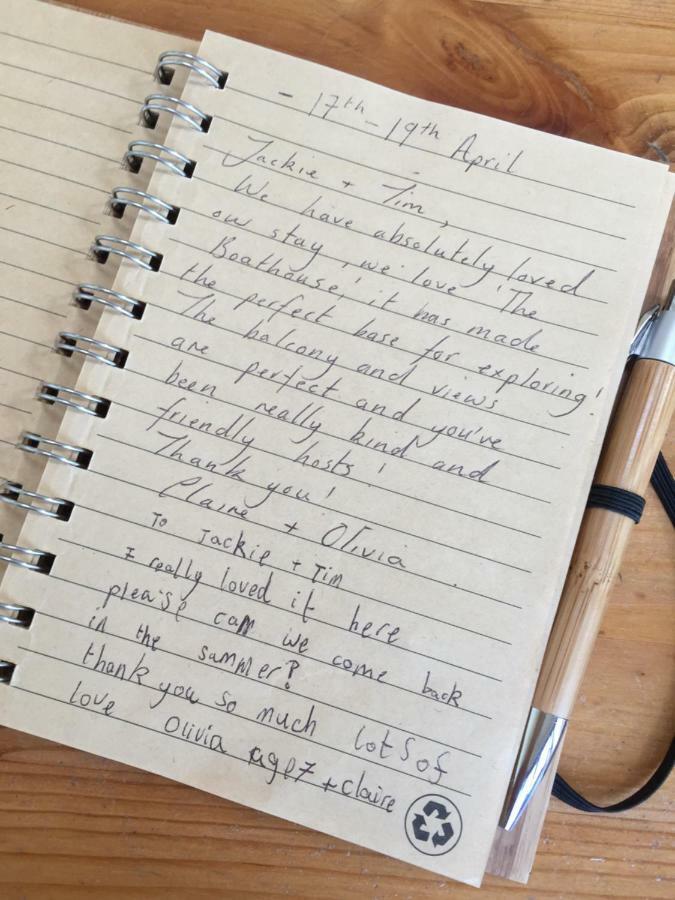 - 17th - 19th April
Jackie + Tim,
We have absolutely loved
our stay, we love 'The
Boathouse', it has made
the perfect base for exploring!
The balcony and views
are perfect and you've
been really kind and
friendly hosts!
Thank you!
Claire + Olivia
To Jackie + Tim
I really loved it here
please can we come back
in the summer?
thank you so much lots of
love Olivia age 7 + Claire